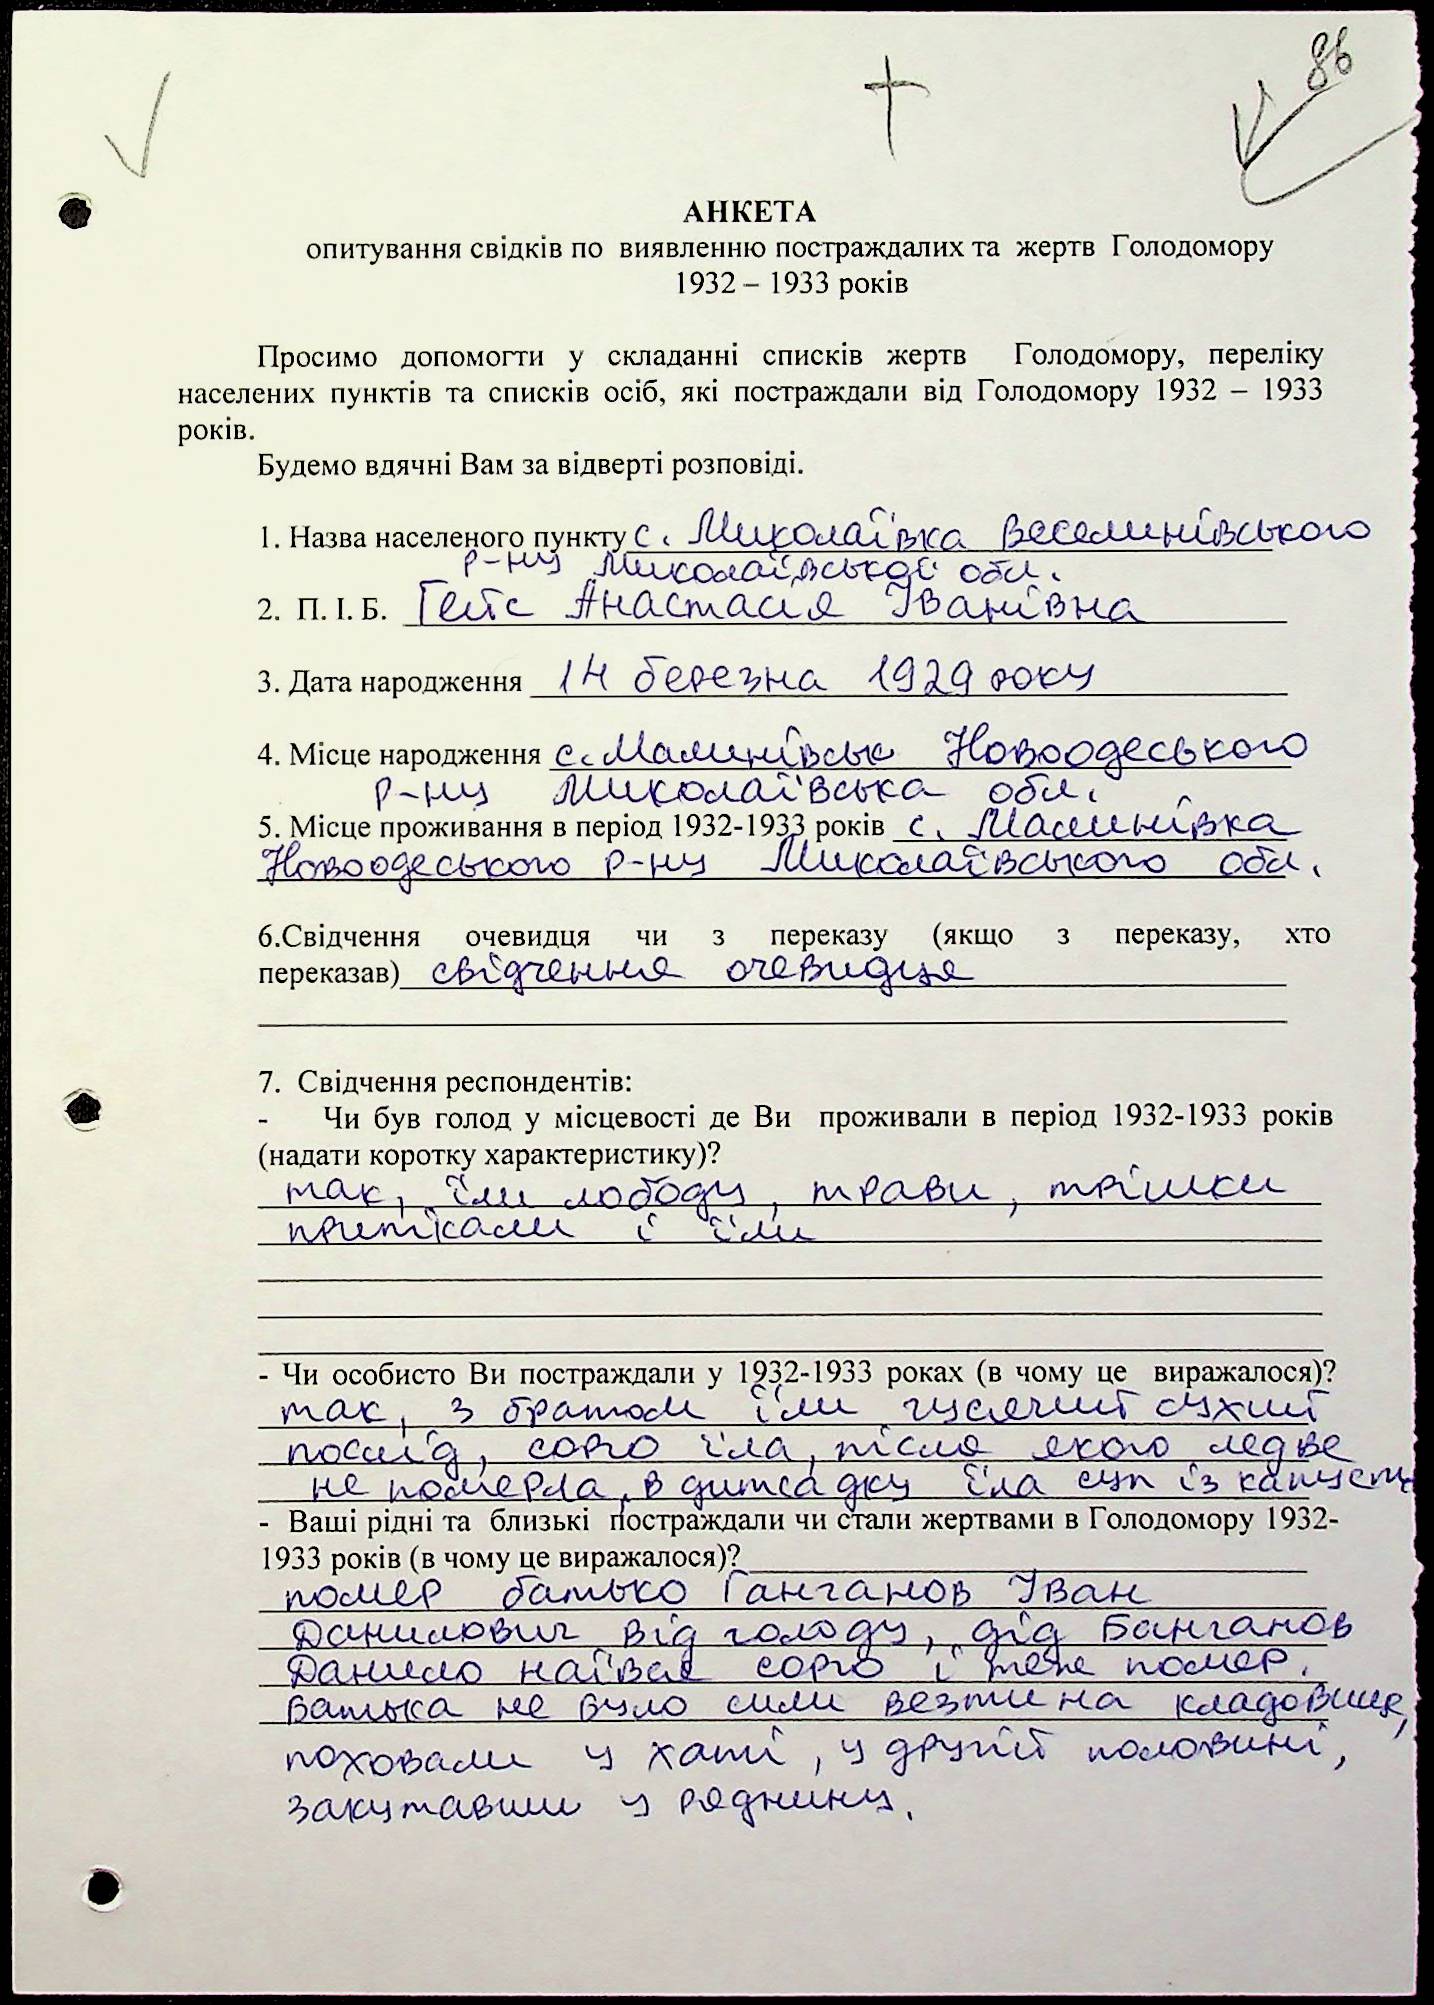 86
АНКЕТА
опитування свідків по виявленню постраждалих та жертв Голодомору
1932 – 1933 років
Просимо допомогти у складанні списків жертв Голодомору, переліку
населених пунктів та списків осіб, які постраждали від Голодомору 1932 – 1933
років.
Будемо вдячні Вам за відверті розповіді.
1. Назва населеного пункту с. Миколаївка Веселинівського
р-ну Миколаївської обл.
2. П. І. Б. Гейс Анастасія Іванівна
3. Дата народження 14 березна 1929 року
4. Місце народження с. Малинівськ Новоодеського
р-ну Миколаївська обл.
5. Місце проживання в період 1932-1933 років с. Малинівка
Новоодеського р-ну Миколаївського обл.
6.Свідчення очевидця чи з переказу (якщо з переказу, хто
переказав) свідчення очевидця
7. Свідчення респондентів:
- Чи був голод у місцевості де Ви проживали в період 1932-1933 років
(надати коротку характеристику)?
так, їли лободу, трави, трішки
притікали і їли
- Чи особисто Ви постраждали у 1932-1933 роках (в чому це виражалося)?
так, з братом їли гусячий сухий
послід, сорго їла, після якого ледве
не померла, в дитсадку їла суп із капусти
- Ваші рідні та близькі постраждали чи стали жертвами в Голодомору 1932-
1933 років (в чому це виражалося)?
помер батько Ганганов Іван
Данилович від голоду, дід Банганов
Данило наївся сорго і теж помер.
Батька не було сили везти на кладовище,
поховали у хаті, у другій половині,
закутавши у ряднину.